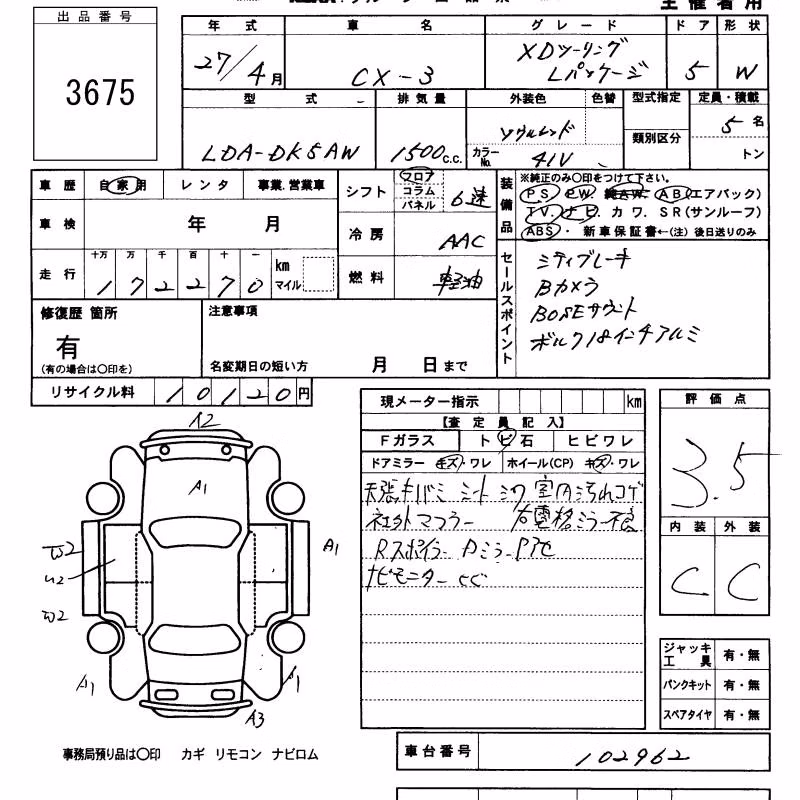 主催者用
出品番号
3675
年式 車名 グレード ドア 形状
27/4月 CX-3 XDツーリング Lパッケージ 5 W
型式 排気量 外装色 色替 型式指定 定員・積載
類別区分
LDA-DK5AW 1500c.c. ソウルレッド カラーNo. 41V 5名
トン
車歴 自家用 レンタ 事業.営業車
シフト フロア コラム パネル 6速
装備品 ※純正のみ○印をつけて下さい。
PS. PW. 純AW. AB(エアバック)
TV. ナビ. カワ. SR(サンルーフ)
ABS. 新車保証書←(注) 後日送りのみ
車検 年 月
冷房 AAC
走行 十万 万 千 百 十 一 km マイル
172270
燃料 軽油
セールスポイント
シティブレーキ
Bカメラ
BOSEサウンド
ボルク18インチアルミ
修復歴 箇所
有
(有の場合は○印を)
注意事項
名変期日の短い方 月 日まで
リサイクル料 10120円
現メーター指示 km
【査定員記入】
Fガラス トビ石 ヒビワレ
ドアミラー キズ・ワレ ホイール(CP) キズ・ワレ
天張キバミ シートシワ 室内汚れコゲ
社外マフラー 右電格ミラー不良
Rスポイラー Dミラー P
ナビモニター
評価点
3.5
内装 外装
C C
A2
A1
A1
W2
U2
W2
A1
A1
A3
ジャッキ工具 有・無
パンクキット 有・無
スペアタイヤ 有・無
事務局預り品は○印 カギ リモコン ナビロム
車台番号 102962